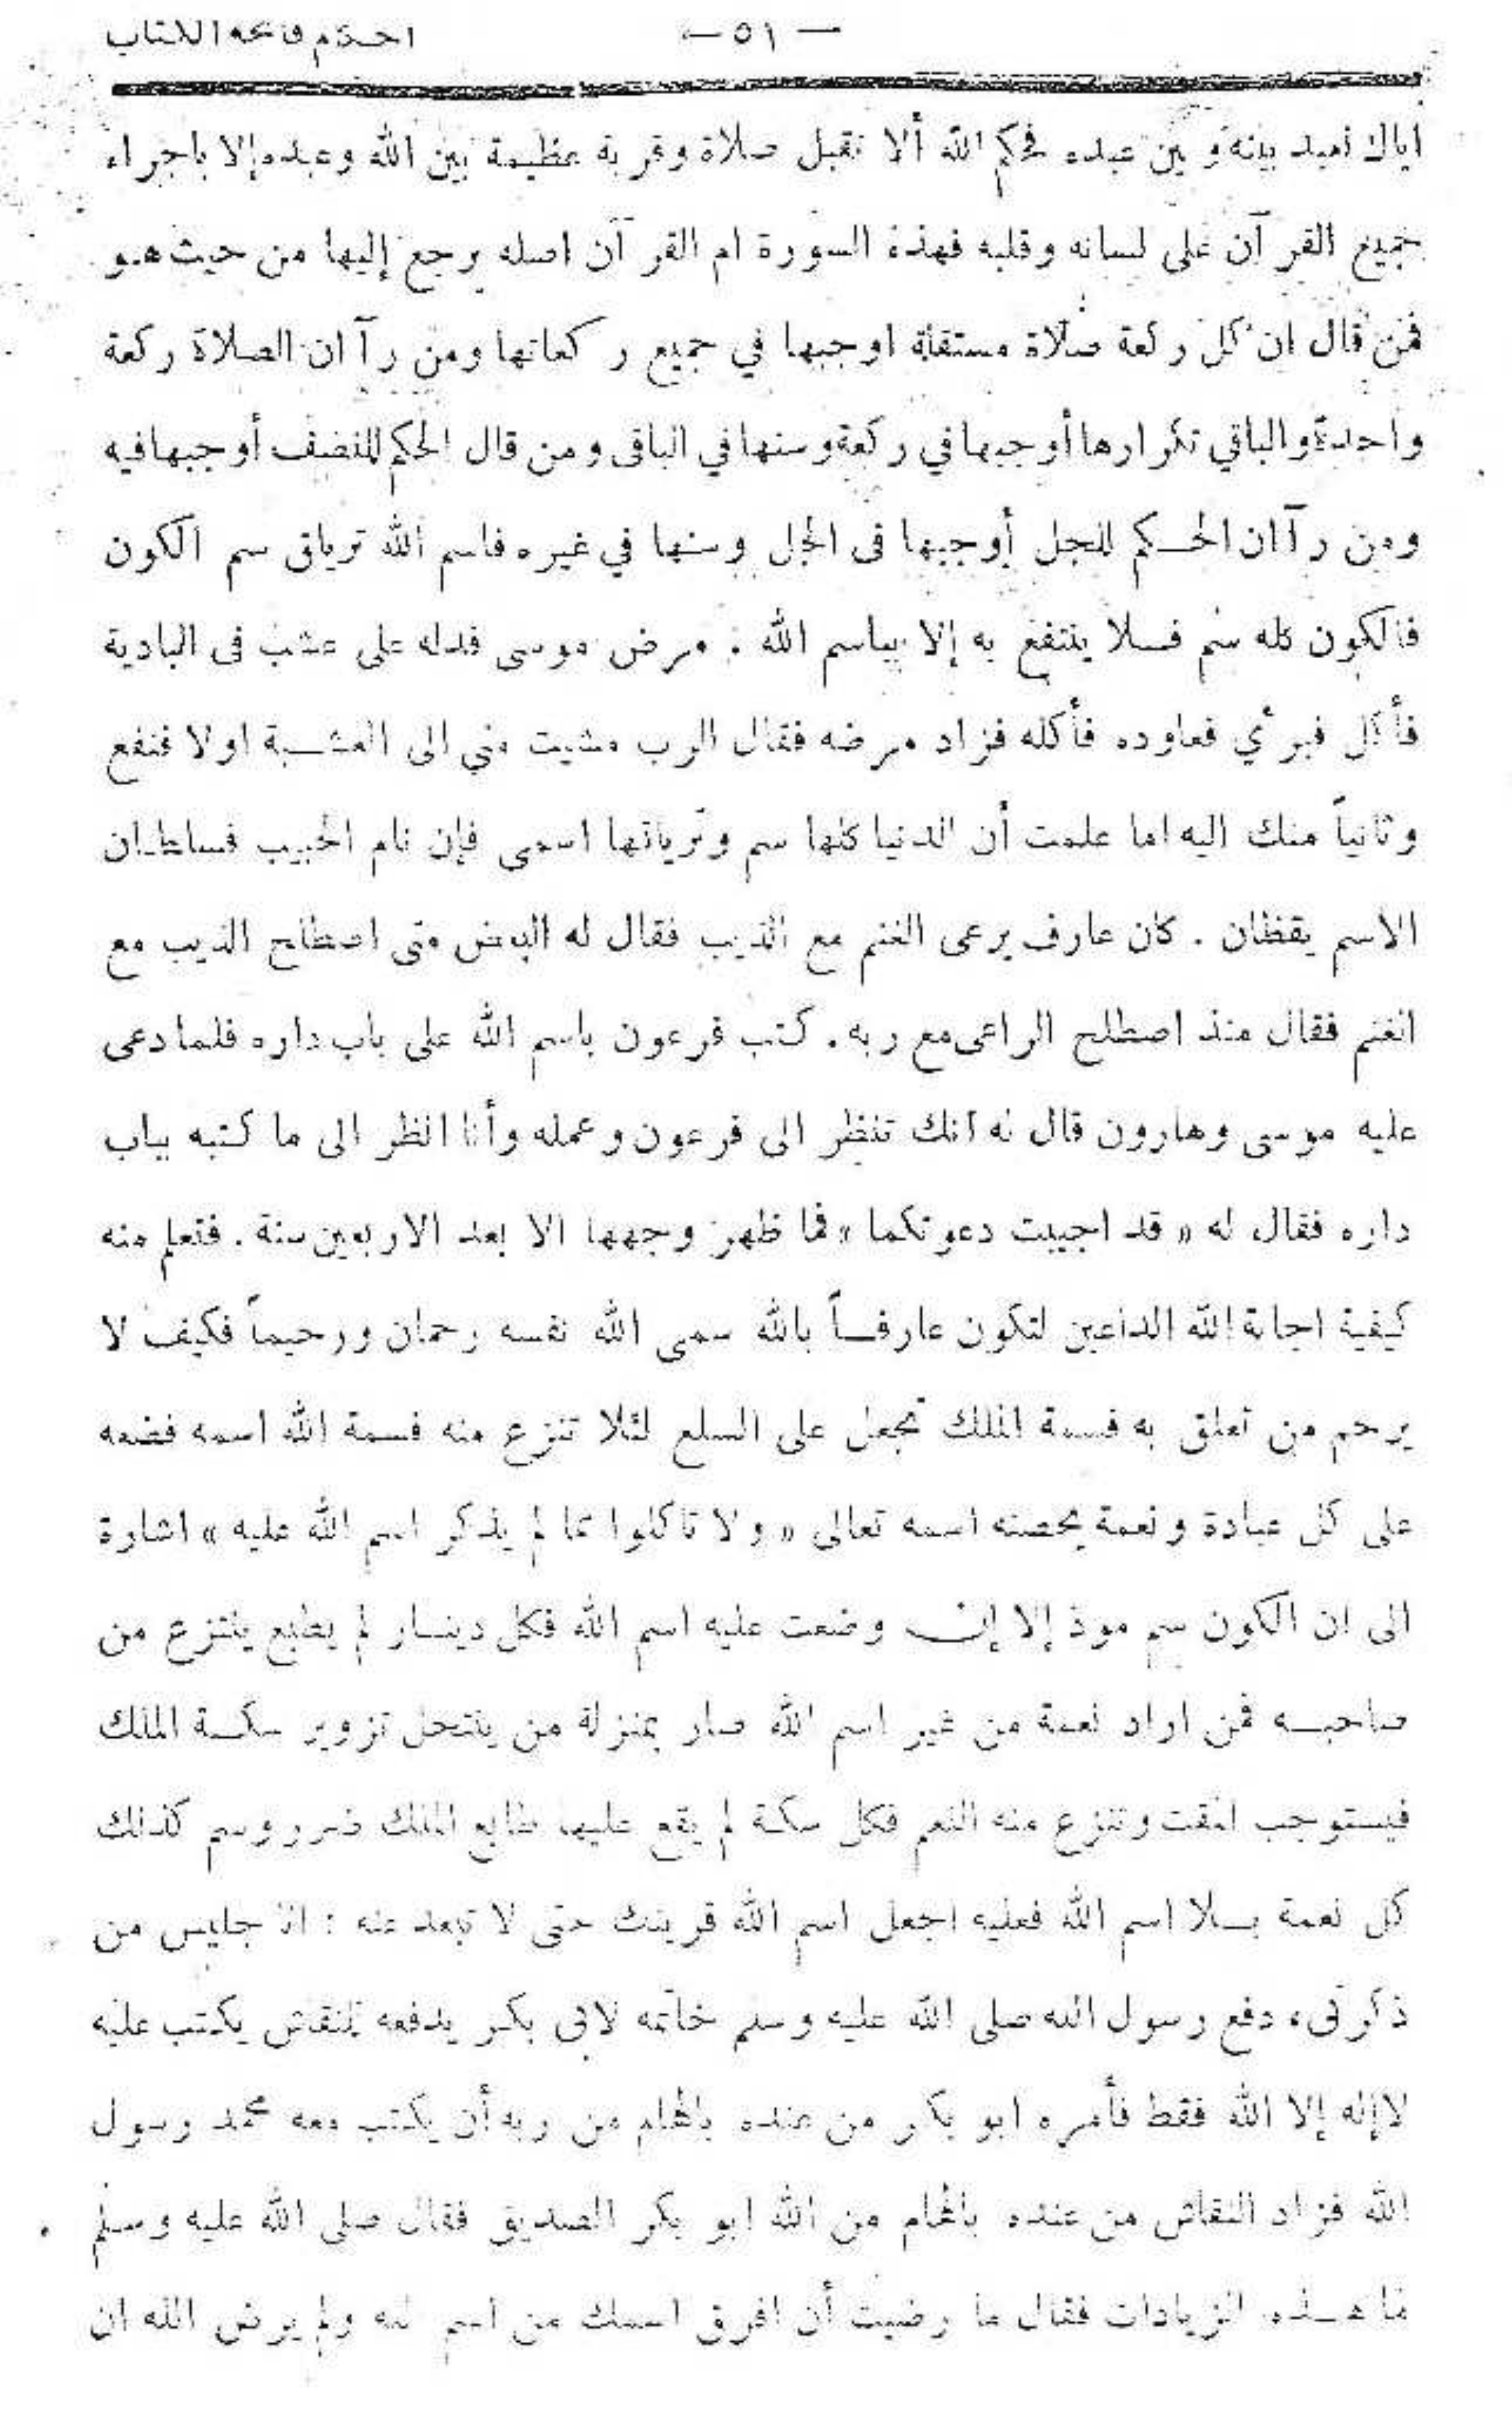 — ٥١ —
احكام فاتحة الكتاب
اياك نعبد بينه و بين عبده فحكم الله ألا تقبل صلاة وقربة عظيمة بين الله وعبده إلا باجراء
جميع القرآن على لسانه وقلبه فهذه السورة ام القرآن اصله يرجع إليها من حيث هو
فمن قال ان كل ركعة صلاة مستقلة اوجبها في جميع ركعاتها ومن رآ ان الصلاة ركعة
واحدة والباقي تكرارها أوجبها في ركعة وسنها في الباقى ومن قال الحكم للنصف أوجبها فيه
ومن رآ ان الحكم للجل أوجبها فى الجل وسنها في غيره فاسم الله ترياق سم الكون
فالكون كله سم فلا ينتفع به إلا بباسم الله . مرض موسى فدله على عشب فى البادية
فأكل فبرأي فعاوده فأكله فزاد مرضه فقال الرب مشيت مني الى العشبة اولا فنفع
وثانياً منك اليه اما علمت أن الدنيا كلها سم وترياقها اسمى فإن نام الحبيب فساطان
الاسم يقظان . كان عارف يرعى الغنم مع الذيب فقال له البعض متى اصطلح الذيب مع
الغنم فقال منذ اصطلح الراعى مع ربه . كتب فرعون باسم الله على باب داره فلما دعى
عليه موسى وهارون قال له انك تنظر الى فرعون وعمله وأنا انظر الى ما كتبه بباب
داره فقال له « قد اجيبت دعوتكما » فما ظهر وجهها الا بعد الاربعين سنة . فتعلم منه
كيفية اجابة الله الداعين لتكون عارفاً بالله سمى الله نفسه رحمان ورحيماً فكيف لا
يرحم من تعلق به فسمة الملك تجعل على السلع لئلا تنزع منه فسمة الله اسمه فضمه
على كل عبادة ونعمة يحصنه اسمه تعالى « ولا تاكلوا مما لم يذكر اسم الله عليه » اشارة
الى ان الكون سم موذ إلا إن وضعت عليه اسم الله فكل دينار لم يطبع ينتزع من
صاحبه فمن اراد نعمة من غير اسم الله صار بمنزلة من ينتحل تزوير سكة الملك
فيستوجب المقت وتنزع منه النعم فكل سكة لم يقع عليها طابع الملك ضرر وسم كذلك
كل نعمة بلا اسم الله فعليه اجعل اسم الله قرينك حتى لا تبعد عنه : انا جليس من
ذكرنى، دفع رسول الله صلى الله عليه وسلم خاتمه لابى بكر يدفعه للنقاش يكتب عليه
لاإله إلا الله فقط فأمره ابو بكر من عنده بالهام من ربه أن يكتب معه محمد رسول
الله فزاد النقاش من عنده بالهام من الله ابو بكر الصديق فقال صلى الله عليه وسلم
ما هذه الزيادات فقال ما رضيت أن افرق اسمك من اسم الله ولم يرض الله ان